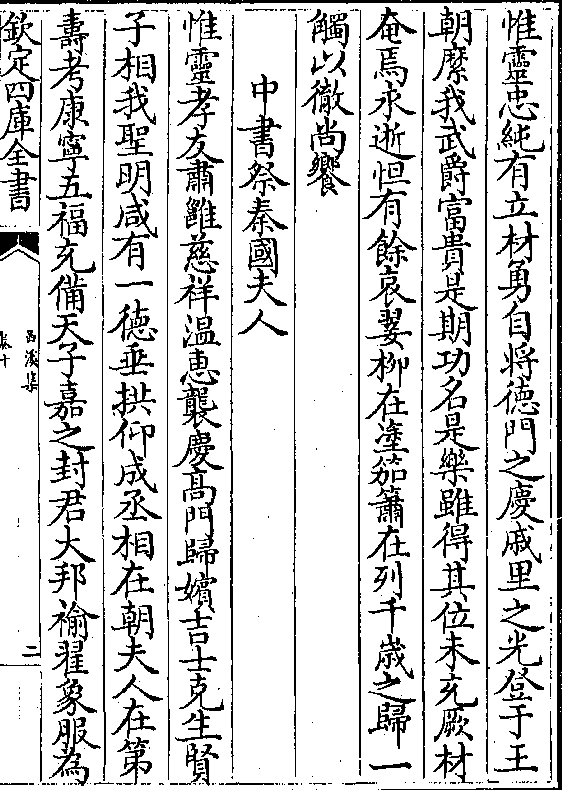 惟靈忠純有立材勇自将徳門之慶戚里之光登于王
朝縻我武爵富貴是期功名是樂雖得其位未充厥材
奄焉永逝怛有餘哀翣柳在塗笳簫在列千歳之歸一
觴以徹尚饗
中書祭秦國夫人
惟靈孝友肅雝慈祥温恵襲慶髙門歸嬪吉士克生賢
子相我聖明咸有一徳垂拱仰成丞相在朝夫人在第
壽考康寧五福充備天子嘉之封君大邦褕翟象服為
欽定四庫全書
西溪集
卷十
二